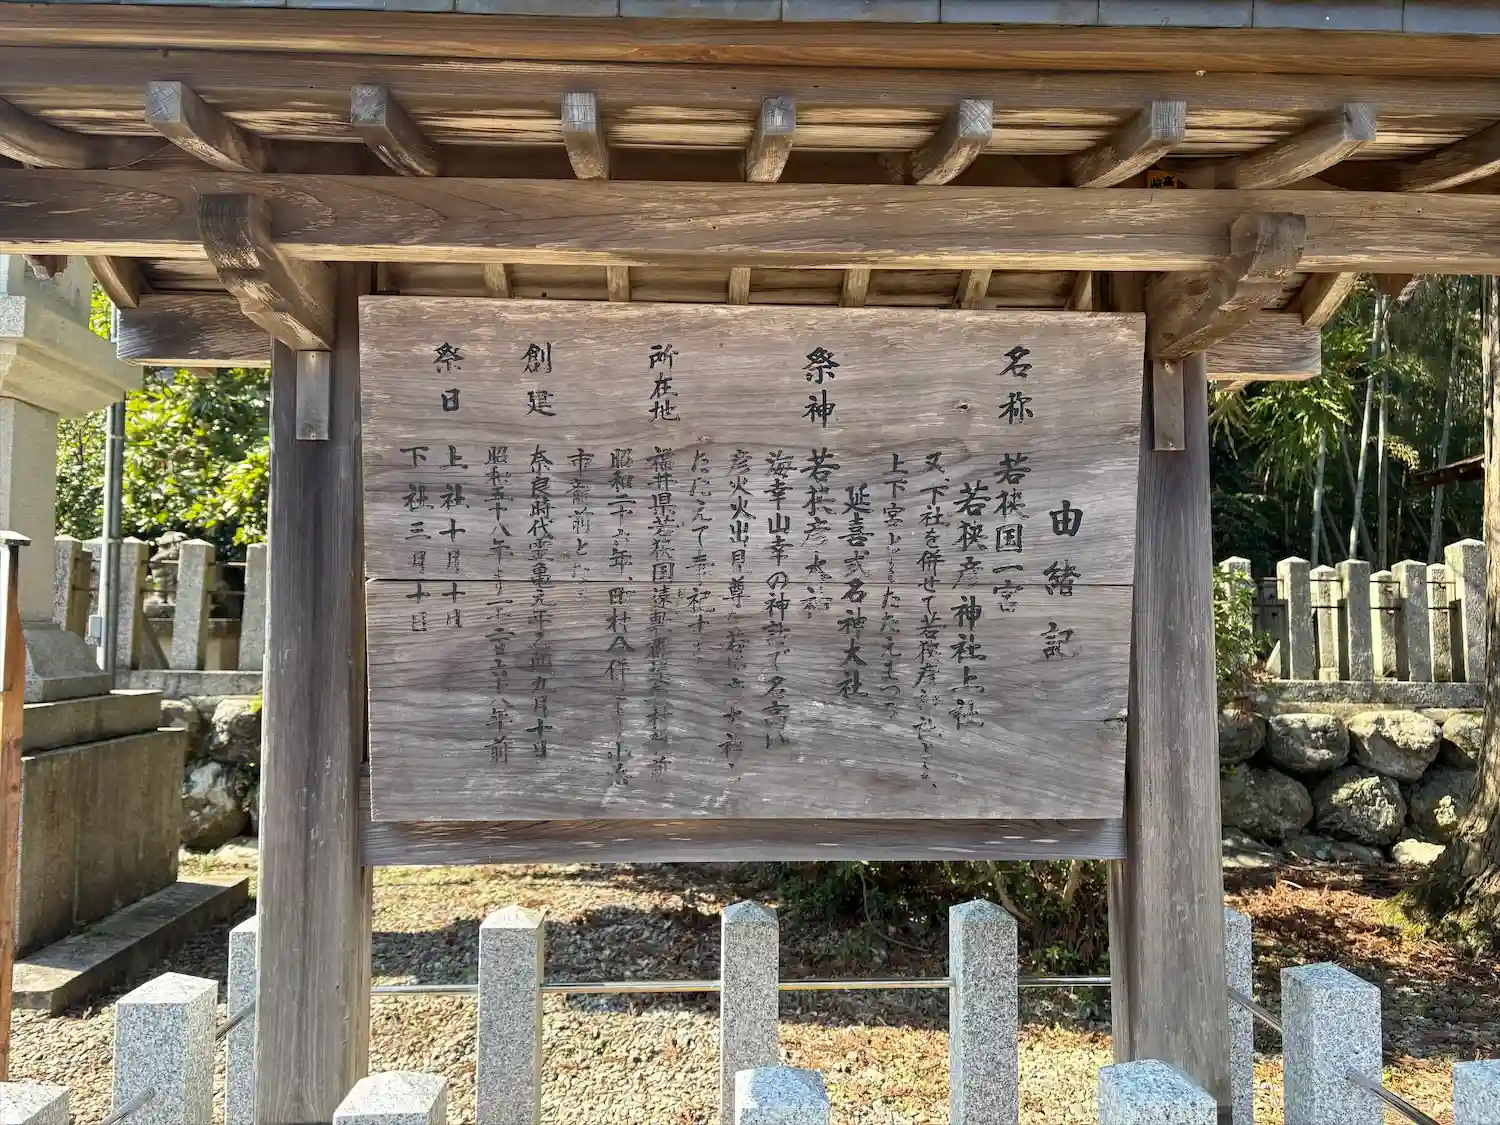 由緒記
名称 若狭国一宮
若狭彦神社上社
又、下社を併せて若狭彦神社とも、
上下宮ともたたえまつる
延喜式名神大社
祭神 若狭彦大神
海幸山幸の神話で名高い
彦火火出見尊
たたえて奉祀
所在地 福井県若狭国遠敷郡
昭和二十六年、町村合併により小浜
市
創建 奈良時代霊亀元年九月十日
昭和五十八年より一千二百六十八年前
祭日 上社 十月十日
下社 三月十日